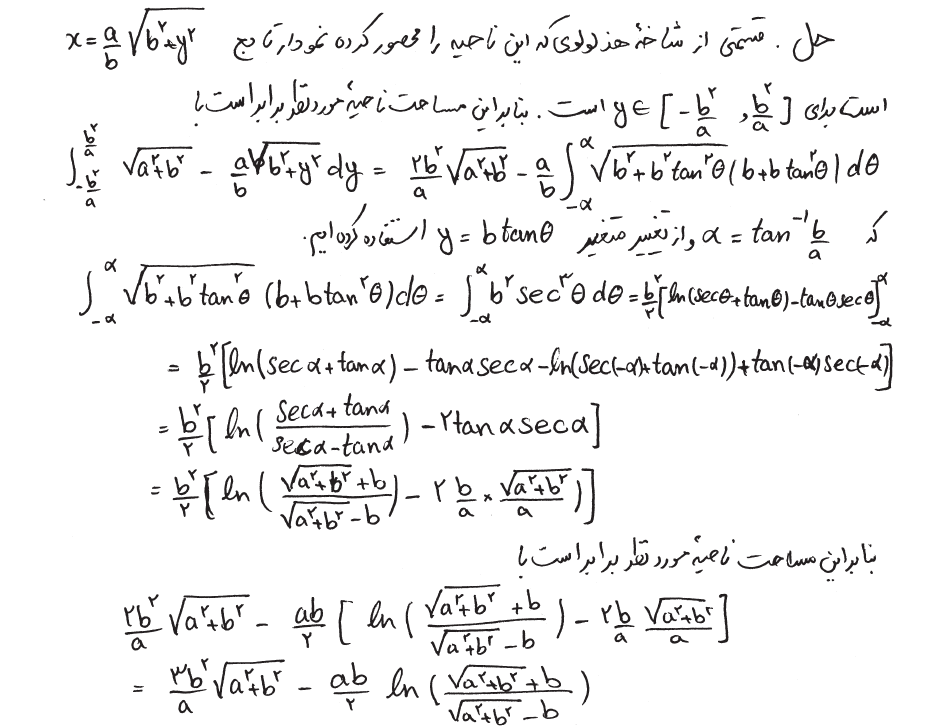 حل. قسمتی از شاخهٔ هذلولوی که این ناحیه را محصور کرده نمودار تابع x = a/b √(b²+y²)
است برای y ∈ [-b²/a , b²/a] است. بنابراین مساحت ناحیهٔ مورد نظر برابر است با
∫_{-b²/a}^{b²/a} √(a²+b²) - a/b √(b²+y²) dy = ۲b²/a √(a²+b²) - a/b ∫_{-α}^{α} √(b²+b²tan²θ) (b+b tan²θ) dθ
که α = tan⁻¹ b/a و از تغییر متغیر y = b tanθ استفاده کرده‌ایم.
∫_{-α}^{α} √(b²+b²tan²θ) (b+b tan²θ) dθ = ∫_{-α}^{α} b² sec³θ dθ = b²/۲ [ln(secθ+tanθ) - tanθ secθ]_{-α}^{α}
= b²/۲ [ln(secα+tanα) - tanα secα - ln(sec(-α)+tan(-α)) + tan(-α) sec(-α)]
= b²/۲ [ln((secα+tanα)/(secα-tanα)) - ۲tanα secα]
= b²/۲ [ln((√(a²+b²)+b)/(√(a²+b²)-b)) - ۲ b/a × √(a²+b²)/a)]
بنابراین مساحت ناحیهٔ مورد نظر برابر است با
۲b²/a √(a²+b²) - ab/۲ [ln((√(a²+b²)+b)/(√(a²+b²)-b)) - ۲b/a √(a²+b²)/a]
= ۳b²/a √(a²+b²) - ab/۲ ln((√(a²+b²)+b)/(√(a²+b²)-b))